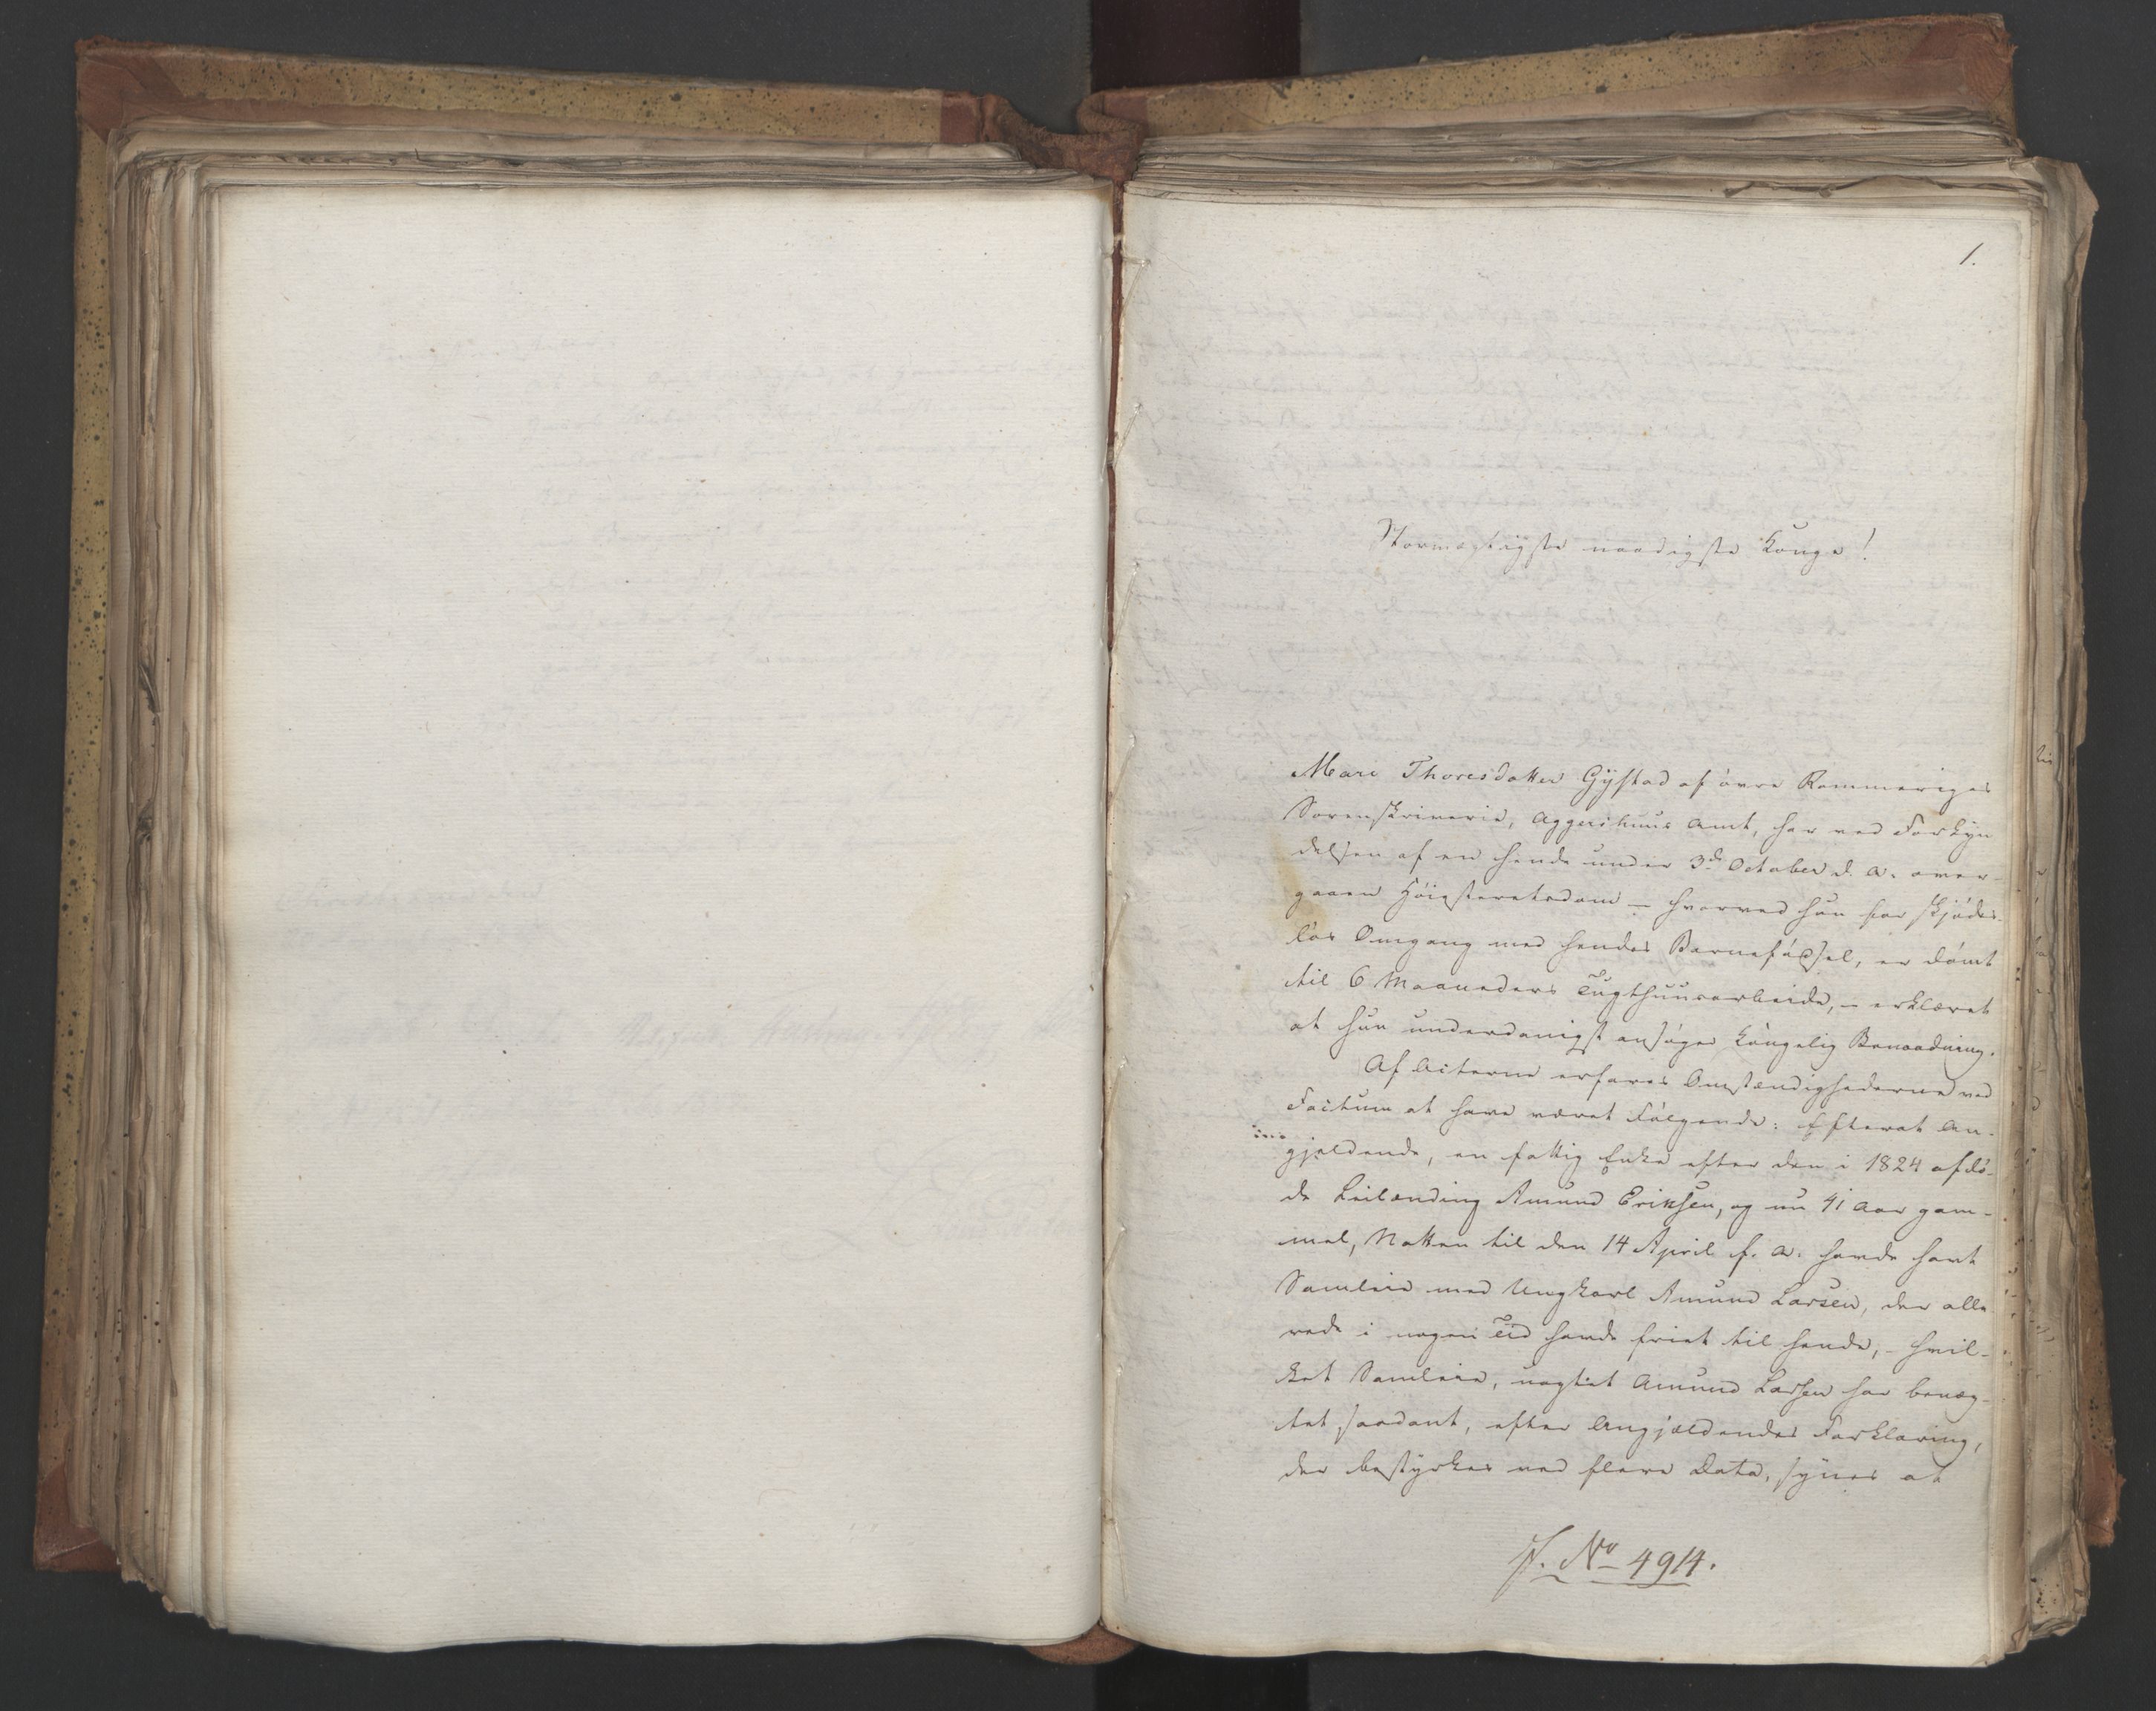 1.
Stormægtigste naadigste Konge!
Mari Thoresdatter Gystad af øvre Rommeriges
Sorenskriverie, Aggershuus Amt, har ved Forkyn
delsen af en hende under 3de October d. A. over-
gaaen Høiesteretsdom – hvorved hun for skjødes-
løs Omgang med hendes Barnefødsel, er dømt
til 6 Maaneders Tugthuusarbeide, – erklæret
at hun underdanigst ansøger Kongelig Benaadning.
Af Acterne erfares Omstændighederne ved
Factum at have været Følgende: Efterat An-
gjeldende, en fattig Enke efter den i 1824 afdø-
de Leilænding Amund Eriksen, og nu 41 Aar gam-
mel, Natten til den 14 April f. A. havde havt
Samleie med Ungkarl Amund Larsen, der alle
rede i nogen Tid havde friet til hende, – hvil-
ket Samleie, uagtet Amund Larsen har benæg-
tet saadant, efter Angjældendes Forklaring,
der bestyrkes ved flere Data, synes at
J. No 4914.